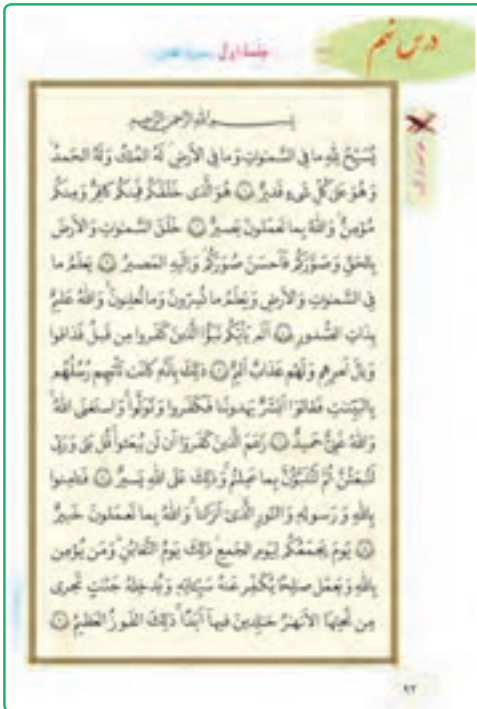 درس نهم
جلسهٔ اول
بِسْمِ اللهِ الرَّحْمٰنِ الرَّحِيمِ
يُسَبِّحُ لِلّٰهِ ما فِي السَّمٰوٰتِ وَ ما فِي الْاَرْضِ لَهُ الْمُلْكُ وَ لَهُ الْحَمْدُ
وَ هُوَ عَلىٰ كُلِّ شَيْءٍ قَديرٌ ١ هُوَ الَّذي خَلَقَكُمْ فَمِنْكُمْ كافِرٌ وَ مِنْكُمْ
مُؤْمِنٌ وَ اللهُ بِما تَعْمَلونَ بَصيرٌ ٢ خَلَقَ السَّمٰوٰتِ وَ الْاَرْضَ
بِالْحَقِّ وَ صَوَّرَكُمْ فَاَحْسَنَ صُوَرَكُمْ وَ اِلَيْهِ الْمَصيرُ ٣ يَعْلَمُ ما
فِي السَّمٰوٰتِ وَ الْاَرْضِ وَ يَعْلَمُ ما تُسِرّونَ وَ ما تُعْلِنونَ وَ اللهُ عَليمٌ
بِذاتِ الصُّدورِ ٤ اَلَمْ يَأْتِكُمْ نَبَؤُا الَّذينَ كَفَروا مِنْ قَبْلُ فَذاقوا
وَبالَ اَمْرِهِمْ وَ لَهُمْ عَذابٌ اَليمٌ ٥ ذٰلِكَ بِاَنَّهُ كانَتْ تَأْتيهِمْ رُسُلُهُمْ
بِالْبَيِّنٰتِ فَقالوا اَبَشَرٌ يَهْدونَنا فَكَفَروا وَ تَوَلَّوْا وَ اسْتَغْنَى اللهُ
وَ اللهُ غَنِيٌّ حَميدٌ ٦ زَعَمَ الَّذينَ كَفَروا اَنْ لَنْ يُبْعَثوا قُلْ بَلىٰ وَ رَبّي
لَتُبْعَثُنَّ ثُمَّ لَتُنَبَّؤُنَّ بِما عَمِلْتُمْ وَ ذٰلِكَ عَلَى اللهِ يَسيرٌ ٧ فَـٔامِنوا
بِاللهِ وَ رَسولِهِ وَ النّورِ الَّذي اَنْزَلْنا وَ اللهُ بِما تَعْمَلونَ خَبيرٌ
٨ يَوْمَ يَجْمَعُكُمْ لِيَوْمِ الْجَمْعِ ذٰلِكَ يَوْمُ التَّغابُنِ وَ مَنْ يُؤْمِنْ
بِاللهِ وَ يَعْمَلْ صالِحًا يُكَفِّرْ عَنْهُ سَيِّـٔاتِهِ وَ يُدْخِلْهُ جَنّٰتٍ تَجْري
مِنْ تَحْتِهَا الْاَنْهٰرُ خٰلِدينَ فيها اَبَدًا ذٰلِكَ الْفَوْزُ الْعَظيمُ ٩
۹۲